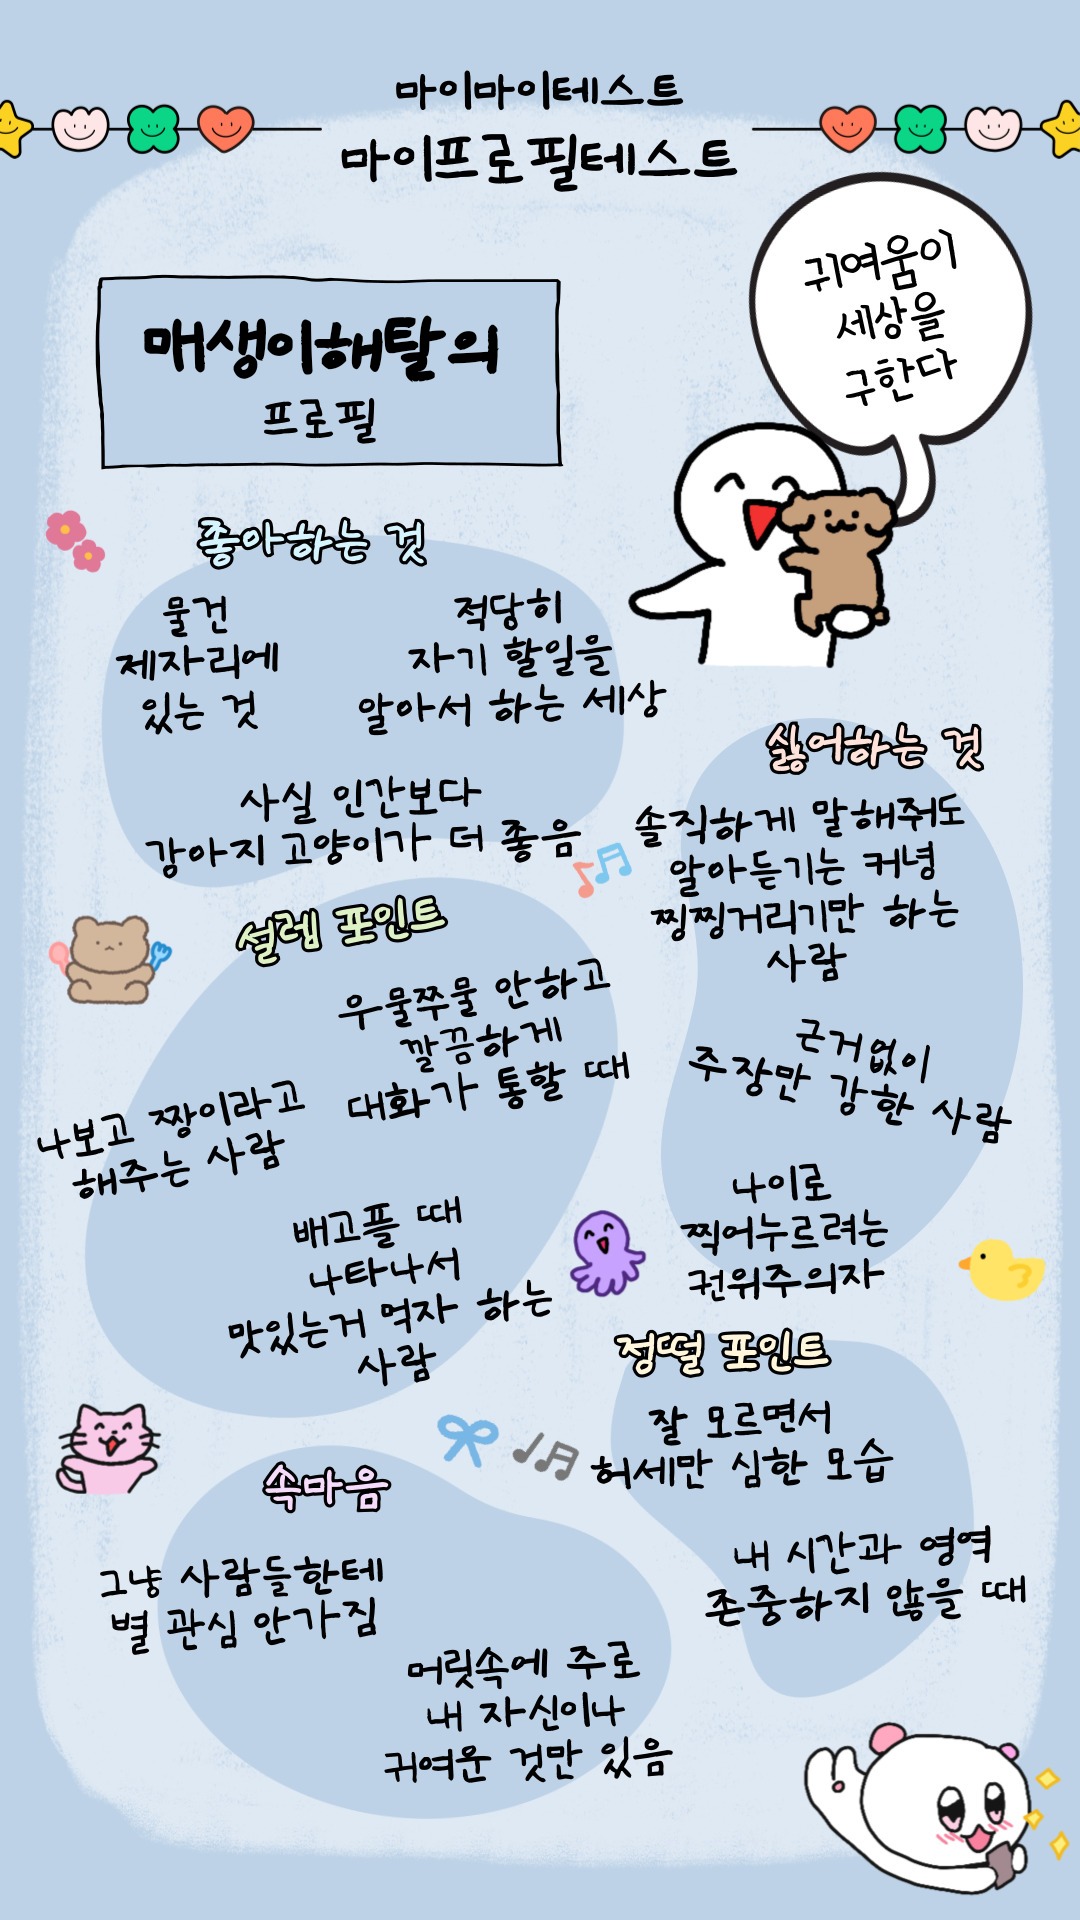 마이마이테스트
마이프로필테스트
귀여움이
세상을
구한다
매생이해탈의
프로필
좋아하는 것
물건
제자리에
있는 것
적당히
자기 할일을
알아서 하는 세상
사실 인간보다
강아지 고양이가 더 좋음
싫어하는 것
솔직하게 말해줘도
알아듣기는 커녕
찡찡거리기만 하는
사람
근거없이
주장만 강한 사람
나이로
찍어누르려는
권위주의자
설렘 포인트
우물쭈물 안하고
깔끔하게
대화가 통할 때
나보고 짱이라고
해주는 사람
배고플 때
나타나서
맛있는거 먹자 하는
사람
정떨 포인트
잘 모르면서
허세만 심한 모습
내 시간과 영역
존중하지 않을 때
속마음
그냥 사람들한테
별 관심 안가짐
머릿속에 주로
내 자신이나
귀여운 것만 있음